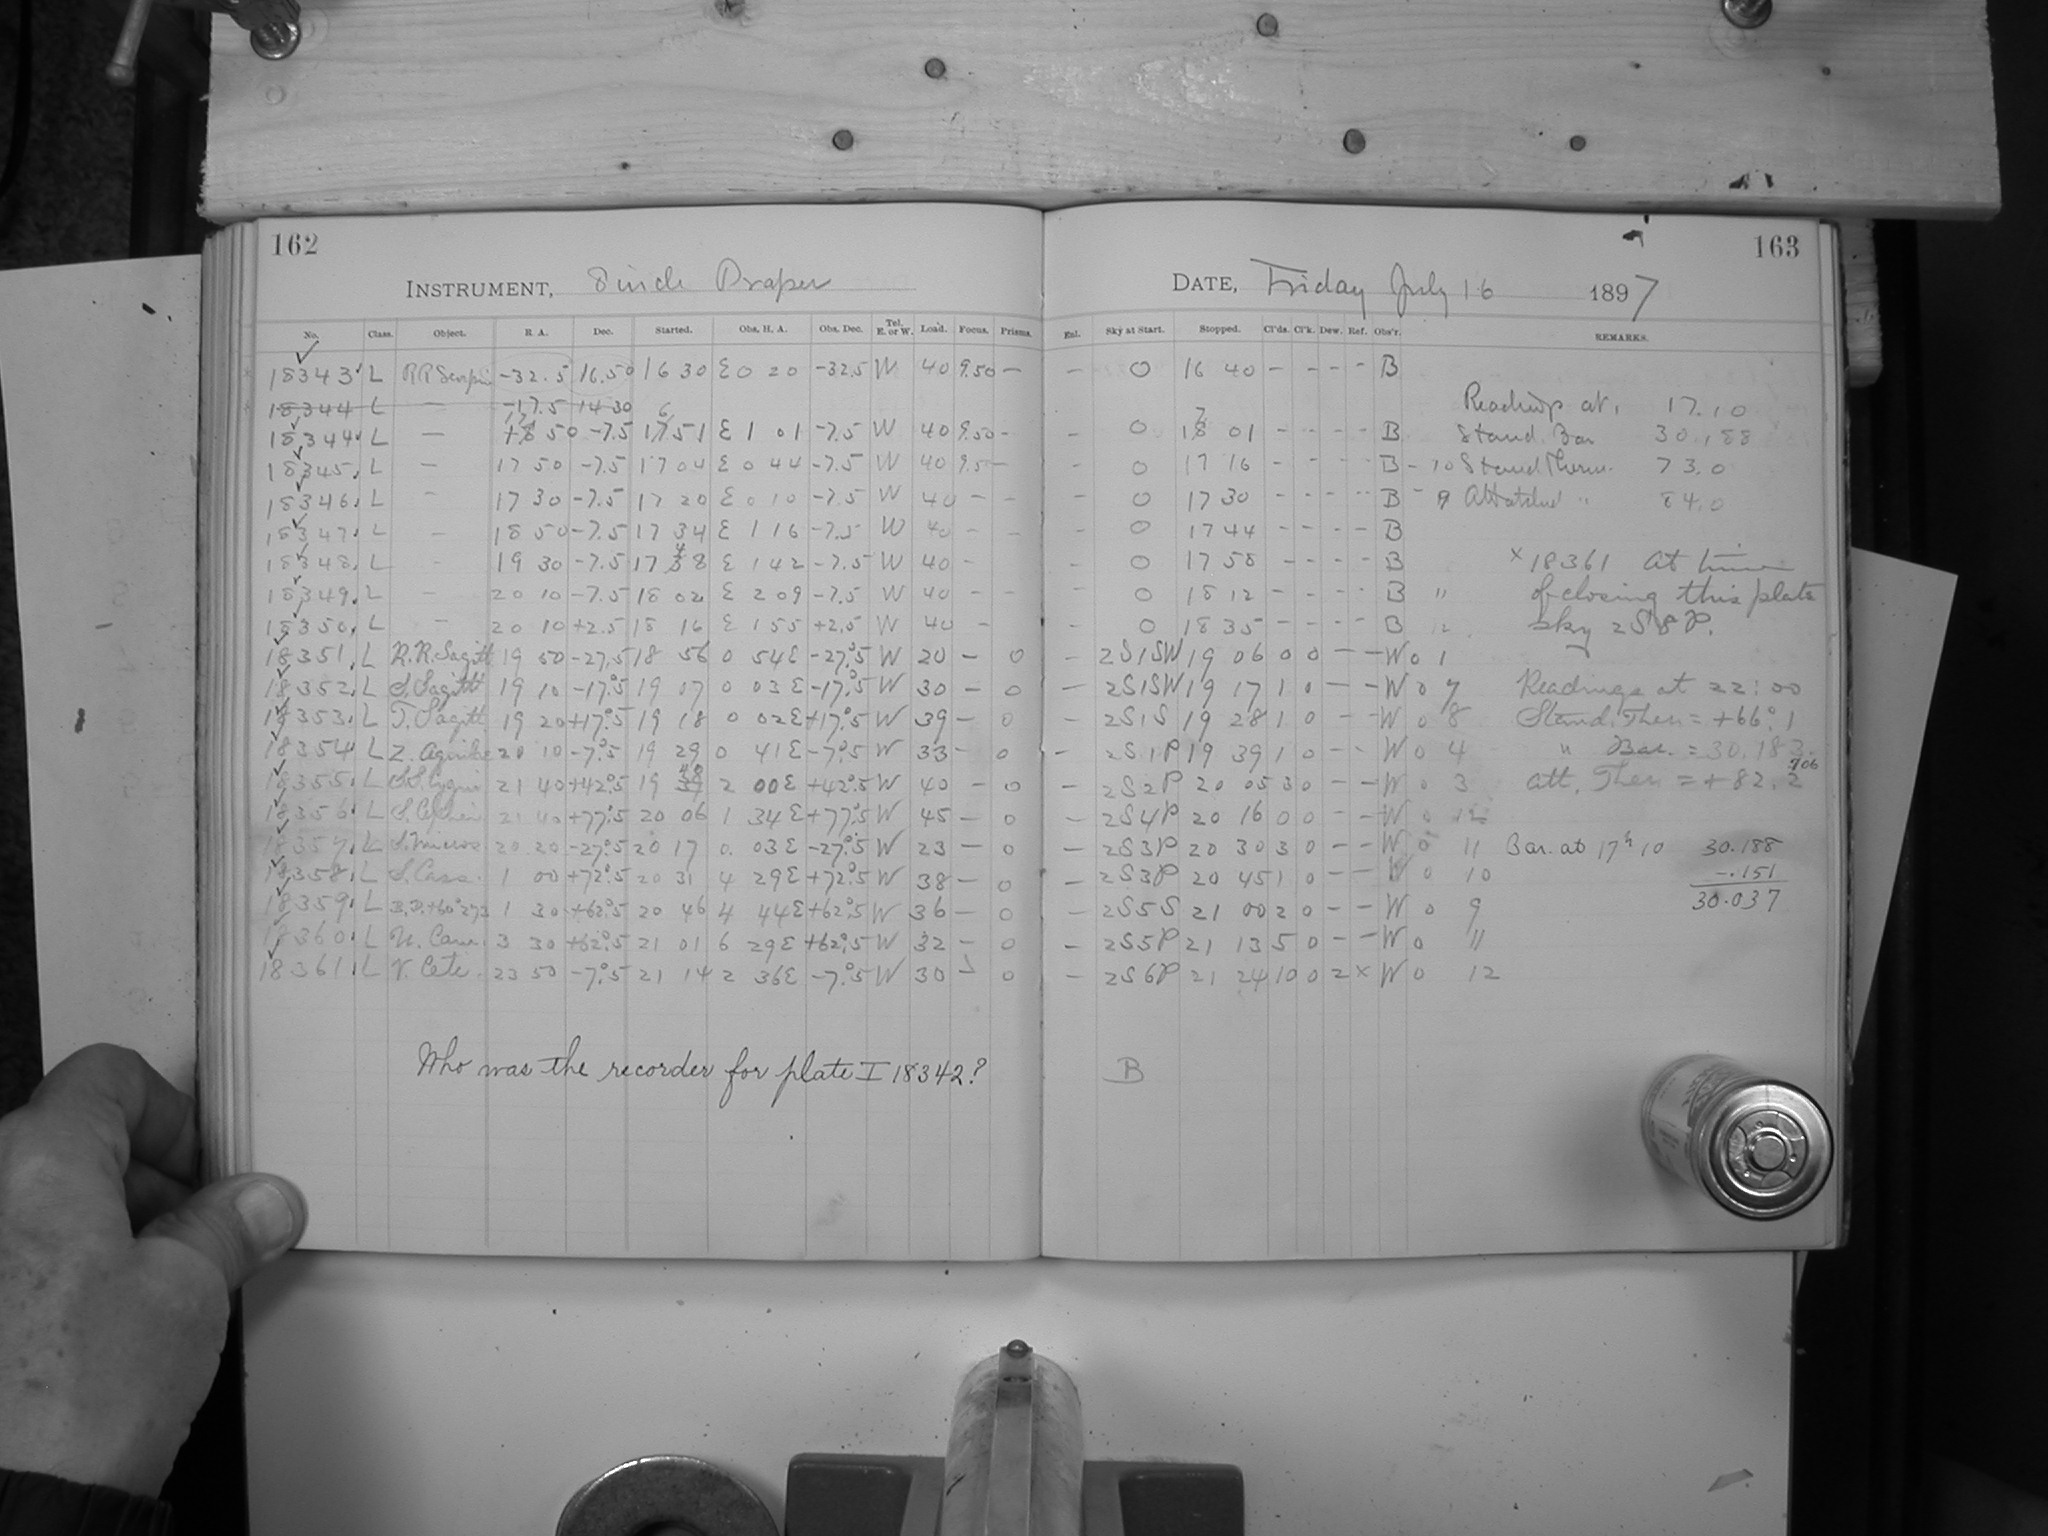 162
INSTRUMENT, 8 inch Draper
No. Class. Object. R. A. Dec. Started. Obs. H. A. Obs. Dec. Tel. E. or W. Load. Focus. Prisms.
18343. L RR Scorpii -32.5 16.50 16 30 E 0 20 -32.5 W 40 9.50 —
18344 L — -17.5 14 30
18344. L — 50 -7.5 51 E 1 01 -7.5 W 40 9.50 -
18345. L — 17 50 -7.5 17 04 E 0 44 -7.5 W 40 9.5 —
18346. L - 17 30 -7.5 17 20 E 0 10 -7.5 W 40 - -
18347. L - 18 50 -7.5 17 34 E 1 16 -7.5 W 40 - -
18348. L - 19 30 -7.5 17 48 E 1 42 -7.5 W 40 -
18349. L - 20 10 -7.5 18 02 E 2 09 -7.5 W 40 - -
18350. L - 20 10 +2.5 18 16 E 1 55 +2.5 W 40 - -
18351. L R.R. Sagitt 19 50 -27.5 18 56 0 54E -27°.5 W 20 - 0
18352. L S. Sagitt 19 10 -17°.5 19 07 0 03 E -17°.5 W 30 - 0
18353. L T. Sagitt 19 20 +17°.5 19 18 0 02E +17°.5 W 39 - 0
18354 L Z. Aquilae 20 10 -7°.5 19 29 0 41E -7°.5 W 33 - 0
18355. L SS. Cygni 21 40 +42°.5 19 40 2 00E +42°.5 W 40 - 0
18356. L S. Cephei 21 40 +77°.5 20 06 1 34E +77°.5 W 45 - 0
18357. L S. Micros 20 20 -27°.5 20 17 0. 03E -27°.5 W 23 - 0
18358. L S. Cass. 1 00 +72°.5 20 31 4 29E +72°.5 W 38 - 0
18359. L +60°273 1 30 +62°.5 20 46 4 44E +62°.5 W 36 - 0
18360. L U. Cam. 3 30 +62°.5 21 01 6 29E +62°.5 W 32 - 0
18361. L V. Ceti. 23 50 -7°.5 21 14 2 36E -7°.5 W 30 0
Who was the recorder for plate I 18342?
163
DATE, Friday July 16 1897
Enl. Sky at Start. Stopped. Cl'ds. Cl'k. Dew. Ref. Obs'r. REMARKS.
- 0 16 40 - - - - B
Readings at, 17.10
- 0 01 - - - - B Stand. Bar 30.188
- 0 17 16 - - - - B - 10 Stand Therm. 73.0
- 0 17 30 - - - - B - 9 Attatched " 84.0
- 0 17 44 - - - - B
- 0 17 58 - - - - B × 18361 At time
- 0 18 12 - - - - B 11 of closing this plate
- 0 18 35 - - - - B 12 sky 2S8P.
- 2S1SW 19 06 0 0 - - W 0 1
- 2S1SW 19 17 1 0 - - W 0 7 Readings at 22:00
- 2S1S 19 28 1 0 - - W 0 8 Stand. Ther = +66°.1
- 2S1P 19 39 1 0 - - W 0 4 " Bar. = 30.183.
- 2S2P 20 05 3 0 - - W 0 3 att. Ther = +82.2
- 2S4P 20 16 0 0 - - W 0 12
- 2S3P 20 30 3 0 - - W 0 11 Bar. at 17ʰ 10 30.188
- 2S3P 20 45 1 0 - - W 0 10 -.151
- 2S5S 21 00 2 0 - - W 0 9 30.037
- 2S5P 21 13 5 0 - - W 0 11
- 2S6P 21 24 10 0 2 × W 0 12
B